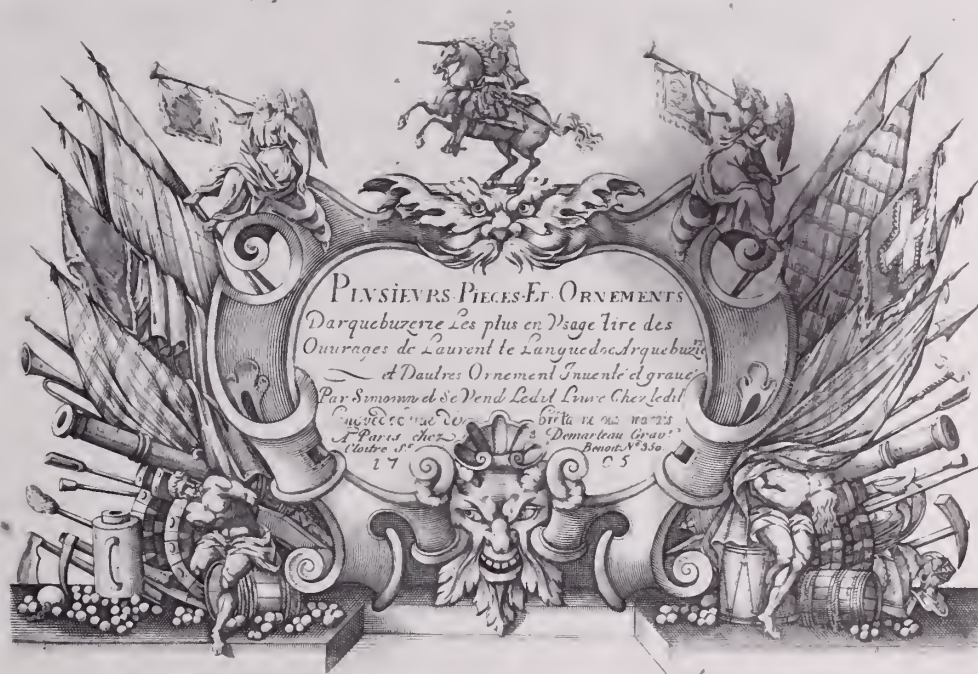 PLVSIEVRS·PIECES·ET·ORNEMENTS
Darquebuzerie Les plus en Vsage tire des
Ouurages de Laurent le Languedoc Arquebuzier
et Dautres Ornement Inuenté et graué
Par Simonin et Se Vend Ledit Liure Chez ledit
rue
A Paris chez Demarteau Grav.r
Cloitre S.t Benoit N.o 350
17 05